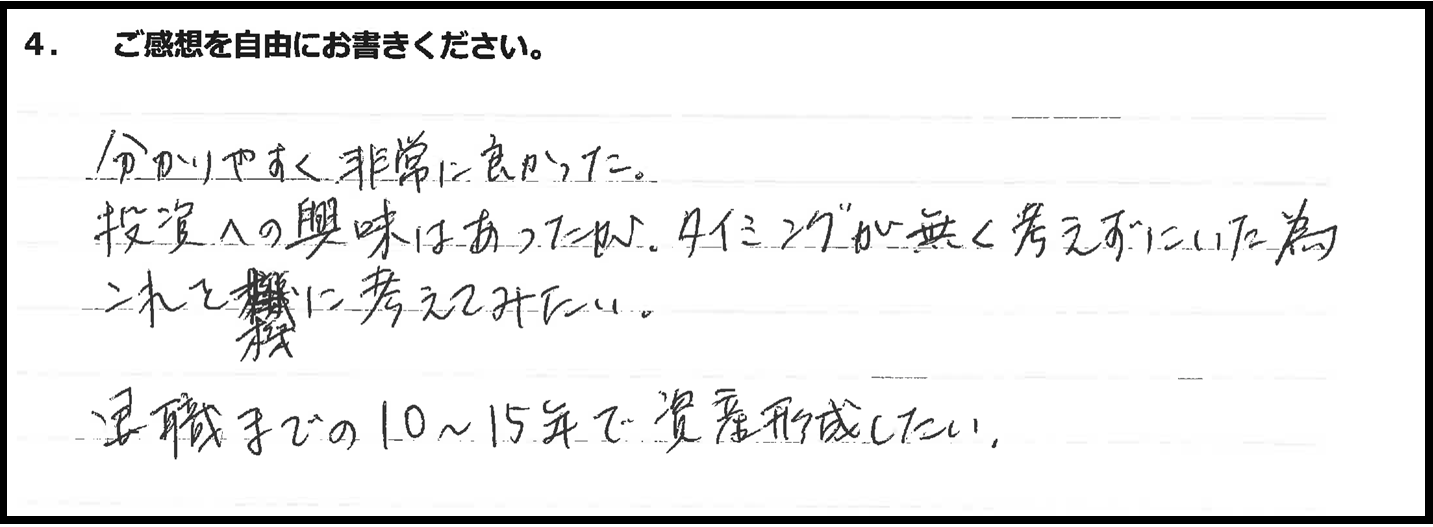 4. ご感想を自由にお書きください。
分かりやすく非常に良かった。
投資への興味はあったが、タイミングが無く考えずにいた為
これを機に考えてみたい。
退職までの10～15年で資産形成したい。